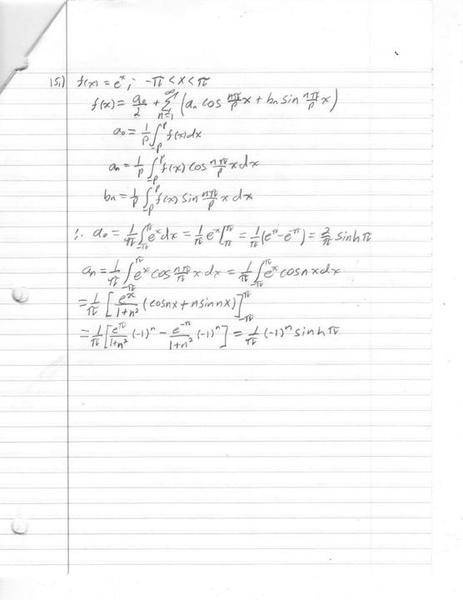 15.) f(x) = e^x ; -π < x < π
f(x) = a₀/2 + Σ_{n=1}^{∞} (aₙ cos nπ/p x + bₙ sin nπ/p x)
a₀ = 1/p ∫_{-p}^{p} f(x)dx
aₙ = 1/p ∫_{-p}^{p} f(x) cos nπ/p x dx
bₙ = 1/p ∫_{-p}^{p} f(x) sin nπ/p x dx
∴ a₀ = 1/π ∫_{-π}^{π} e^x dx = 1/π e^x |_{-π}^{π} = 1/π (e^π - e^{-π}) = 2/π sinh π
aₙ = 1/π ∫_{-π}^{π} e^x cos nπ/π x dx = 1/π ∫_{-π}^{π} e^x cos nx dx
= 1/π [ e^x/(1+n²) (cos nx + n sin nx) ]_{-π}^{π}
= 1/π [ e^π/(1+n²) (-1)^n - e^{-π}/(1+n²) (-1)^n ] = 1/π (-1)^n sinh π